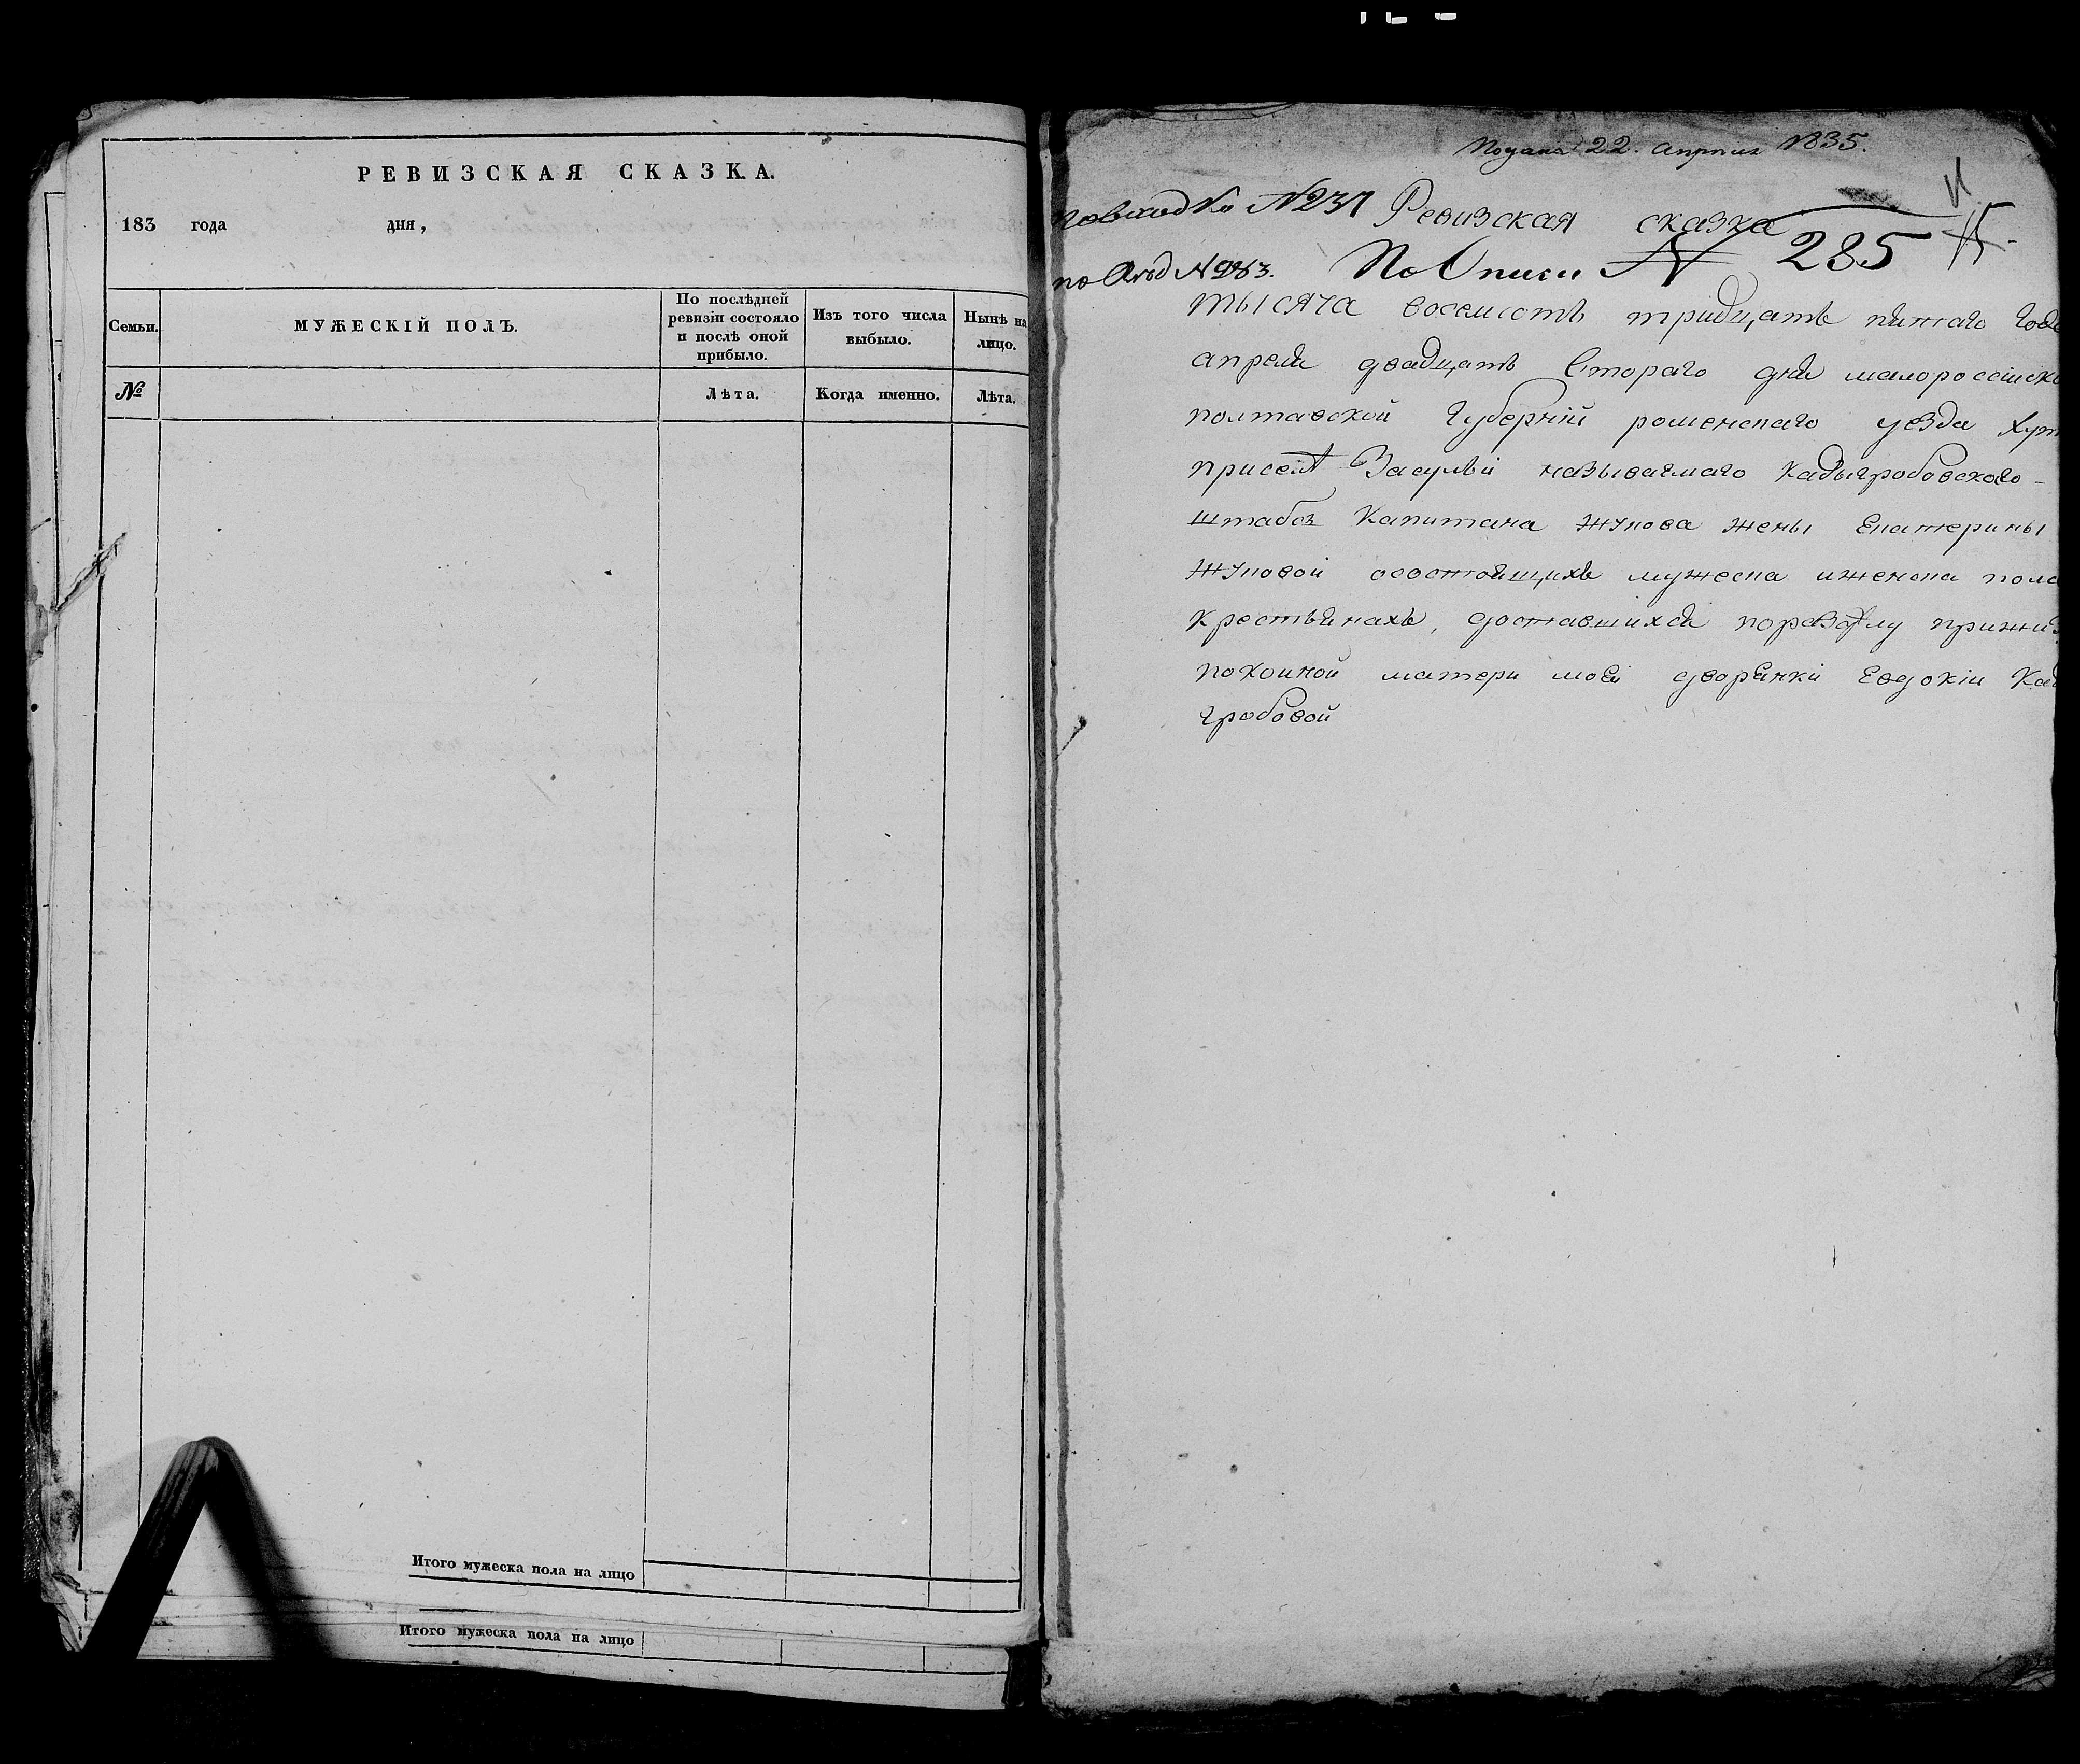 РЕВИЗСКАЯ СКАЗКА.
183 года дня,
Семьи.
МУЖЕСКІЙ ПОЛЪ.
По послѣдней ревизіи состояло и послѣ оной прибыло.
Изъ того числа выбыло.
Нынѣ на лицо.
№
Лѣта.
Когда именно.
Лѣта.
Итого мужеска пола на лицо
Итого мужеска пола на лицо
22. апреля 1835.
N231 Ревизская сказка
По Описи N 285
тысяча восемсотъ тридцать пятаго года
апреля двадцать Втораго дня малоросеійско
полтавской Губерніи роменскаго уезда Хут
присели Засулья называемаго Кадыгробовского
штабсъ Капитана Жукова жены Екатерины
Жуковой осостоящихъ мужеска иженска пола
Крестьянахъ, доставшихся поразделу прижи
покоиной матери моеи дворянки Евдокіи Кад
гробовой